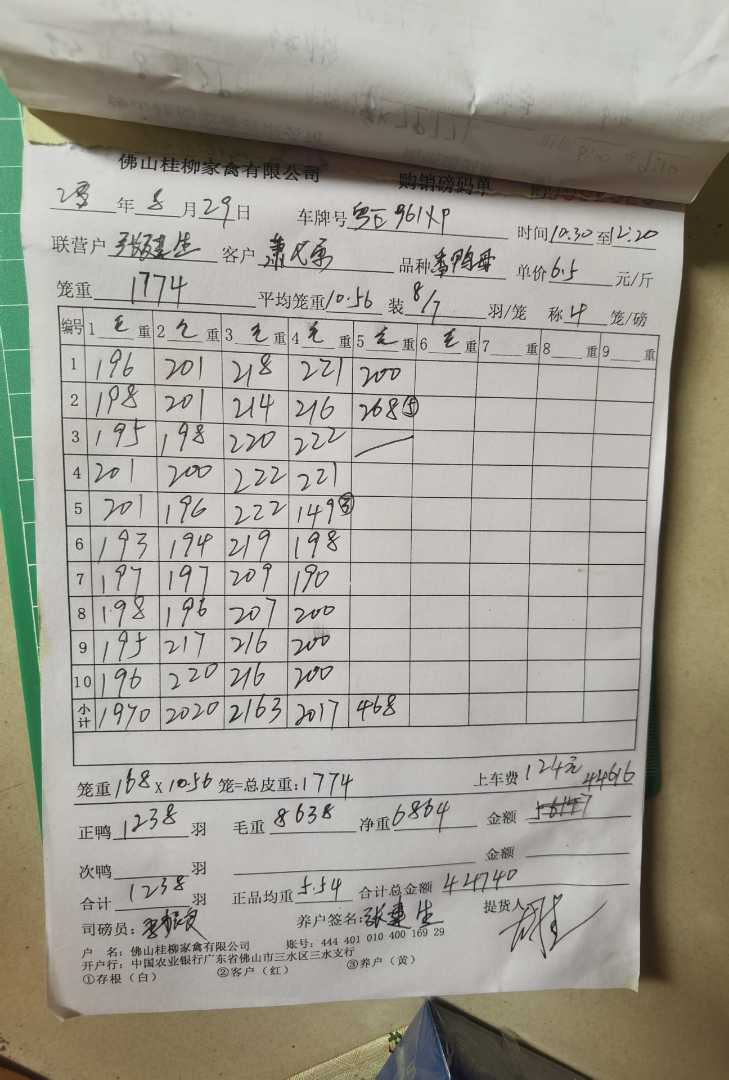 佛山桂柳家禽有限公司 购销磅码单
年 8 月 29 日 车牌号 时间 10.30 至 12.20
联营户 客户 品种 番鸭母 单价 6.5 元/斤
笼重 1774 平均笼重 10.56 装 8/7 羽/笼 称 4 笼/磅
编号 1 毛 重 2 毛 重 3 毛 重 4 毛 重 5 毛 重 6 毛 重 7 重 8 重 9 重
1 196 201 218 221 200
2 198 201 214 216 268⑤
3 195 198 220 222
4 201 200 222 221
5 201 196 222 149③
6 193 194 219 198
7 197 197 209 190
8 198 196 207 200
9 195 217 216 200
10 196 220 216 200
小计 1970 2020 2163 2017 468
笼重 168 x 10.56 笼=总皮重: 1774 上车费 124元
44616
正鸭 1238 羽 毛重 8638 净重 6864 金额
次鸭 羽 金额
合计 1238 羽 正品均重 5.54 合计总金额 44740
司磅员: 养户签名: 张建生 提货人
户 名: 佛山桂柳家禽有限公司 账号: 444 401 010 400 169 29
开户行: 中国农业银行广东省佛山市三水区三水支行
①存根(白) ②客户(红) ③养户(黄)